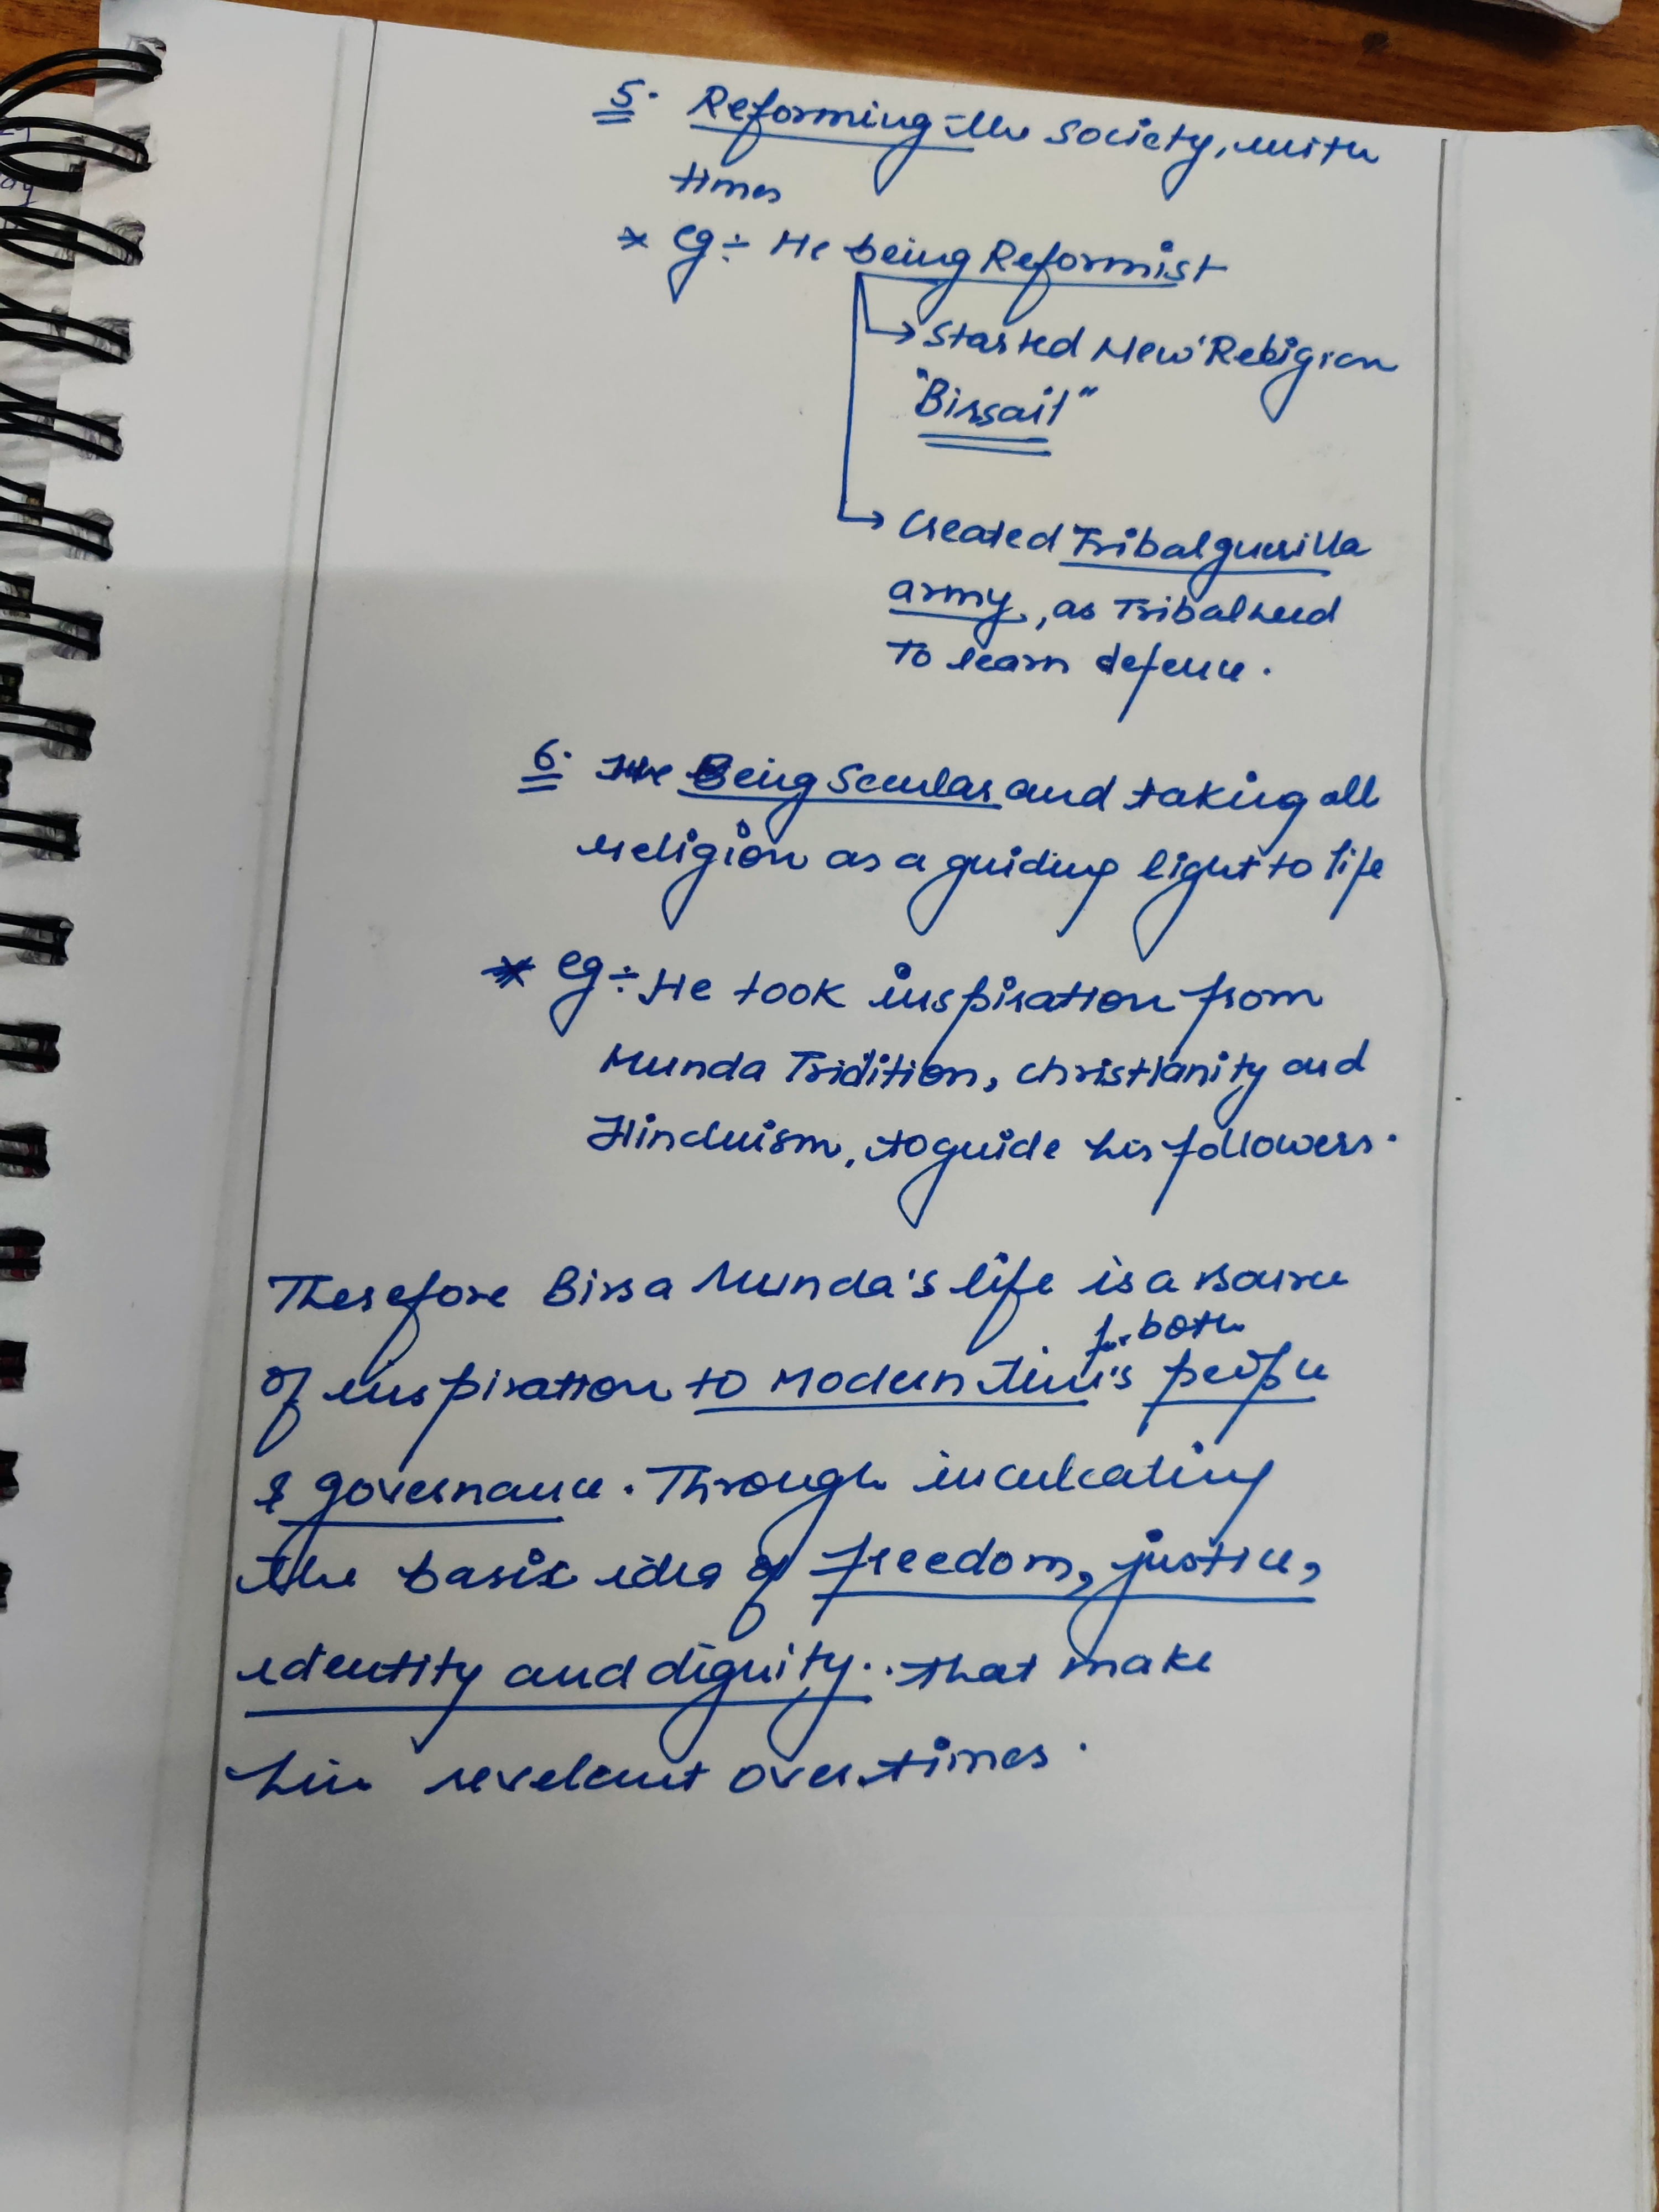 5. Reforming the Society, with
times
* eg ÷ He being Reformist
→ Started New Religion
"Birsait"
→ Created Tribal guerilla
army, as Tribal need
to learn defence.
6. Being Secular and taking all
religion as a guiding light to life
* eg ÷ He took inspiration from
Munda Tridition, christianity and
Hinduism, to guide his followers.
Therefore Birsa Munda's life is a source
for both
of inspiration to Modern time's people
& governance. Through inculcating
the basic idea of freedom, justice,
identity and dignity.. that make
him revelent over times.